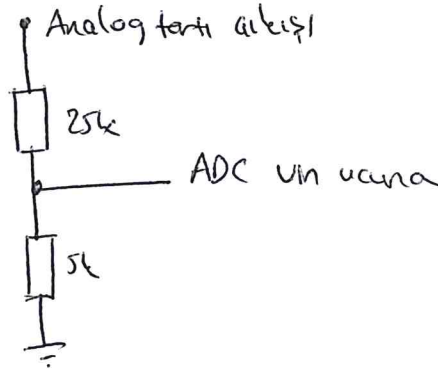 Analog tartı çıkışı
25k
ADC Vin ucuna
5k